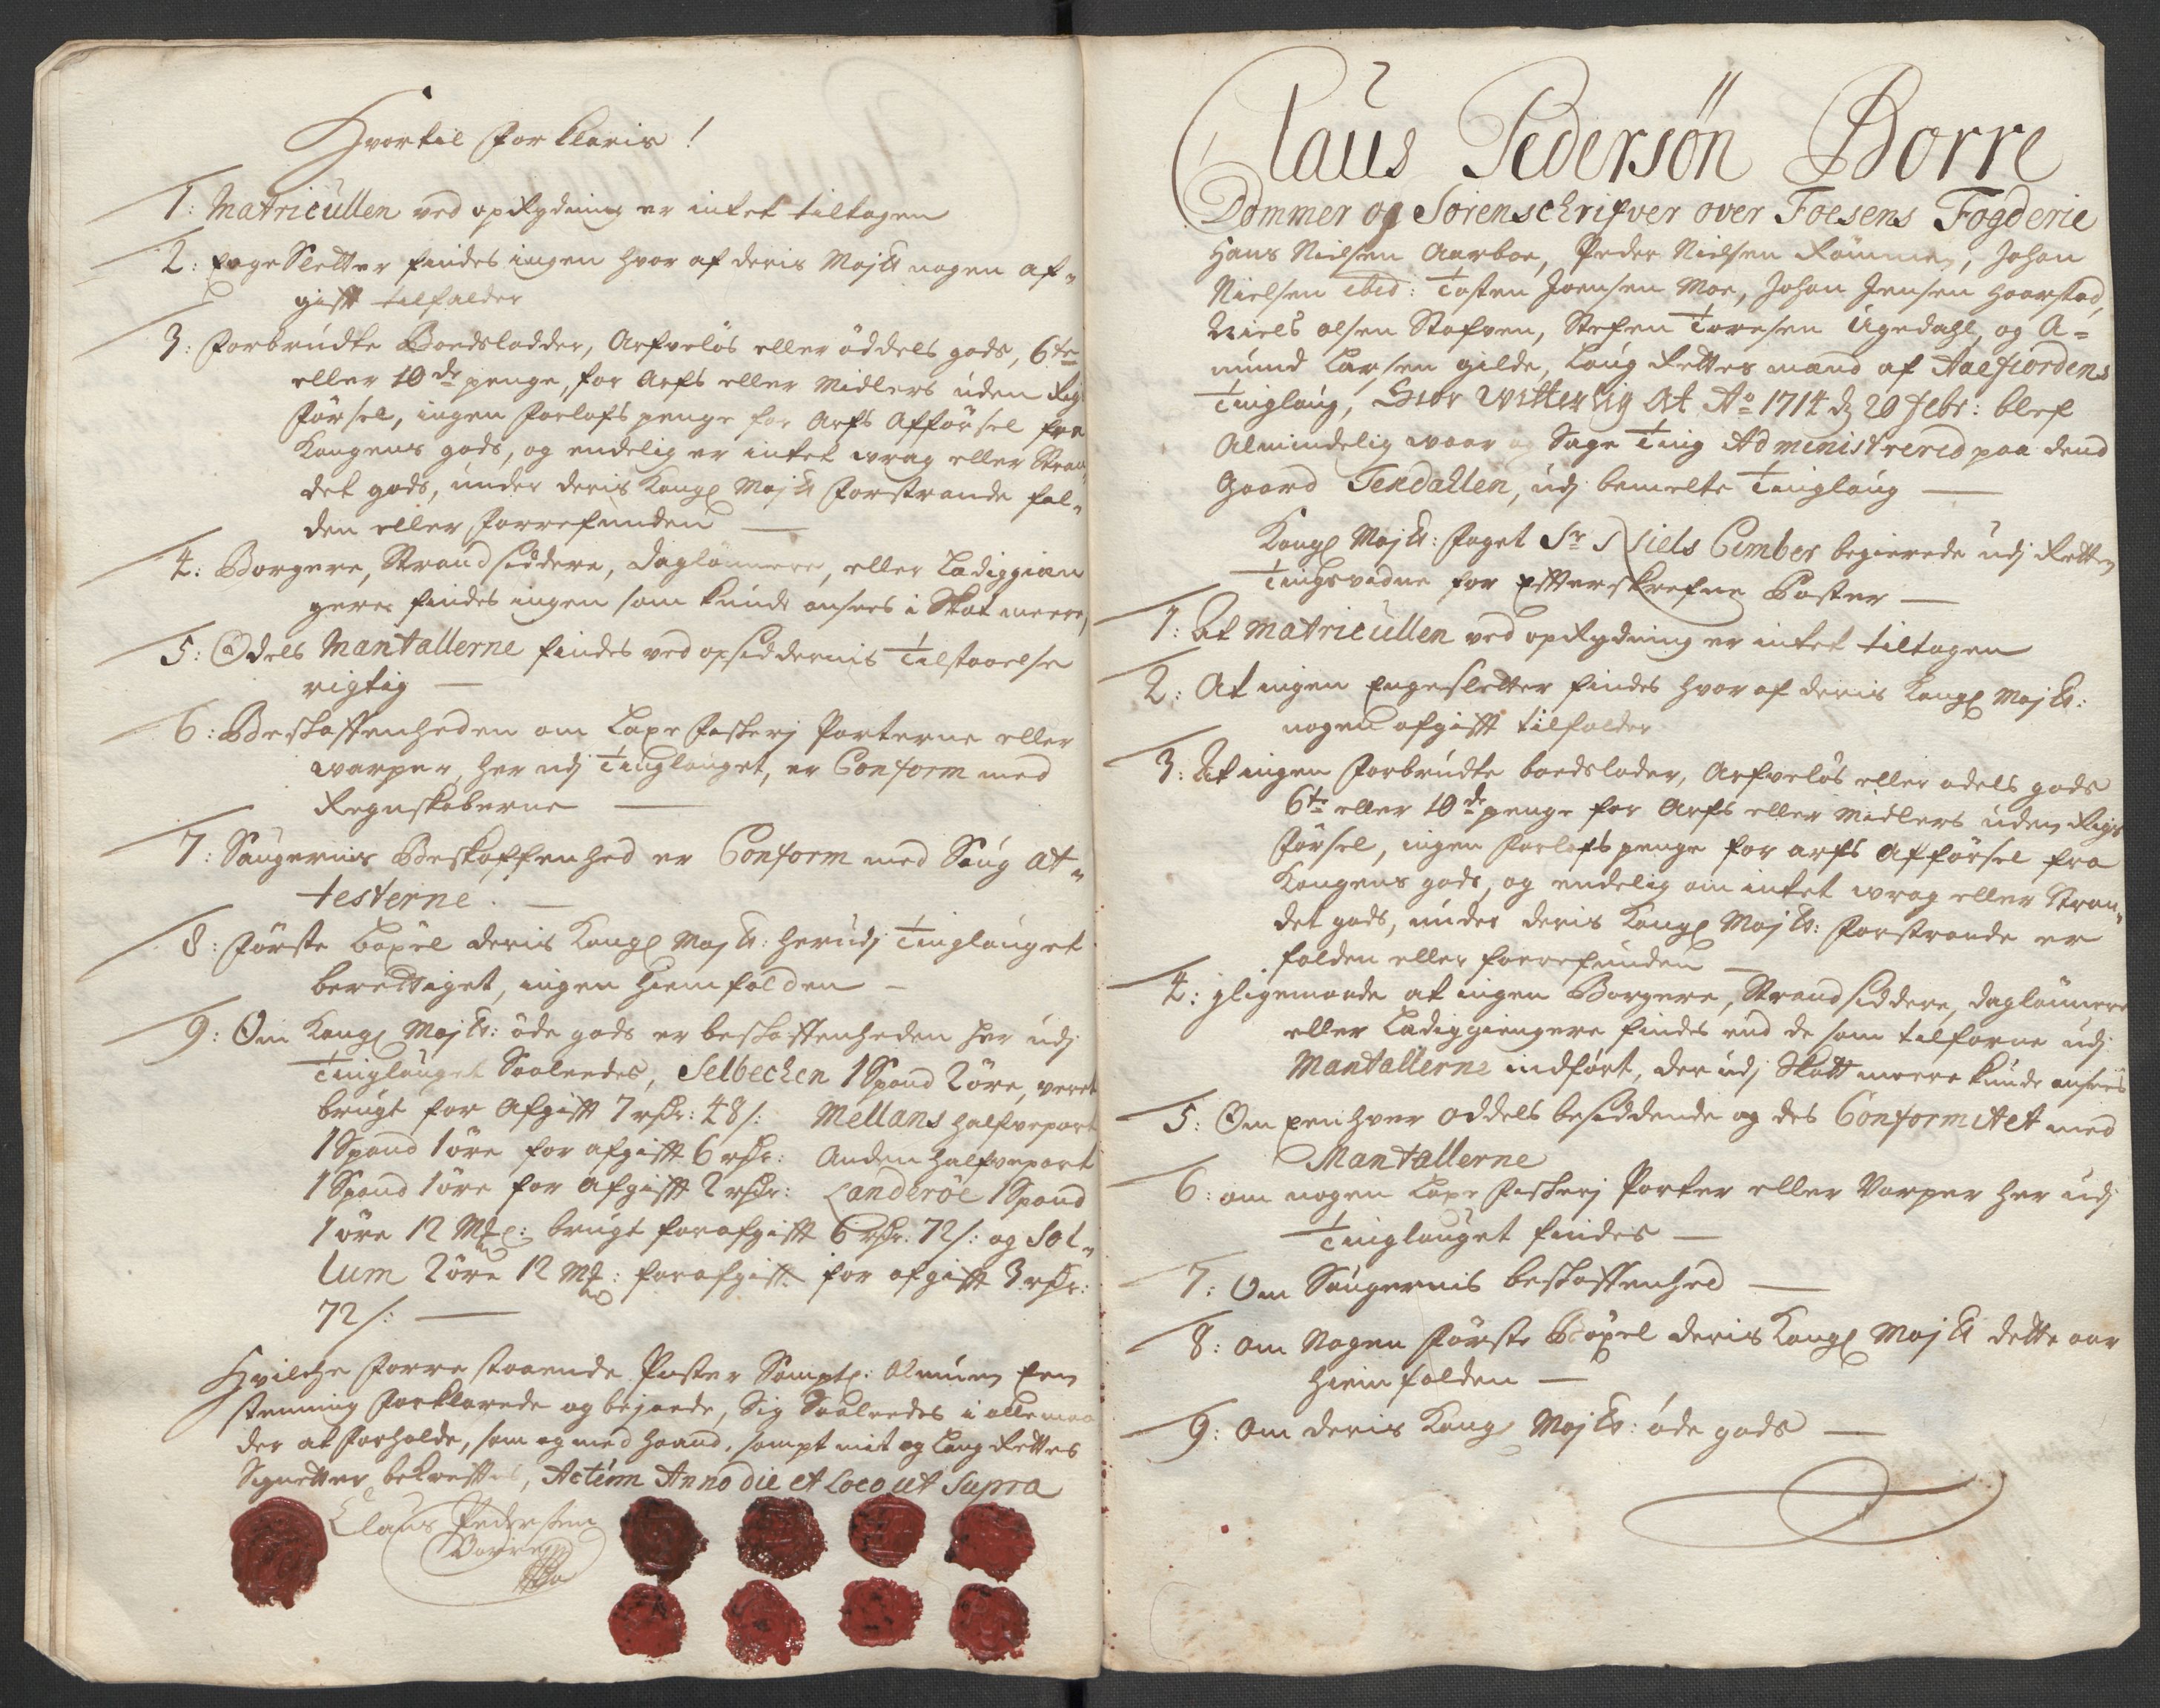 Hvortil Forklaris!
1: Matricullen ved opRydning er intet tiltagen
2: Enge Sletter findes ingen hvor af deris Maj&tt nogen af„
gifft tilfalder
3: Forbrudte Boedslodder, Arfveløs eller øddels gods, 6te
eller 10de penge, for Arfs eller Midlers uden Rigs
Førsel, ingen Forlofs penge for Arfs Afførsel fra
Kongens gods, og endelig er intet wrag eller Stran„
det gods, under deris Kongl Maj&tt Forstrande fal„
den eller Forrefunden —
4: Borgere, Strandsiddere, Daglønnere, eller Ladiggien
gere findes ingen som kunde ansees i Skat meere,
5: Odels Mantallerne findes ved opsiddernis Tilstaaelse
rigtig —
6: Beskaffenheden om Laxe Fiskerj Parterne eller
warper, her udj Tinglauget, er Conform med
Regnskaberne —
7: Saugernis Beskaffenhed er Conform med Saug at„
testerne. —
8: Første Boxel deris Kongl Maj&tt: herudj Tinglauget
berettiget, ingen Hiemfalden —
9: Om Kongl Maj&tt: øde gods er beskaffenheden her udj
Tinglauget Saaleedes, Selbechen 1 Spand 2 øre, veret
brugt for Afgifft 7 rdr: 48 s: Mellans halfvepart
1 Spand 1 øre for afgifft 6 rdr: Anden halfvepart
1 Spand 1 øre for Afgifft 2 rdr: Landerøe 1 Spand
1 øre 12 Mkl: brugt for afgifft 6 rdr. 72 s: og Sol„
lum 2 øre 12 Mk: for afgifft for afgifft 3 rdr:
72 s: —
Hvilche Forrestaaende Poster Samptl: Almuen Een
stemmig Forklarede og bejaede, Sig Saaleedes i alle maa
der at Forholde, som og med Haand, sampt mit og Laug Rettes
Signetter bekrefftis, Actum Anno die et Loco ut Supra
Claus Pedersen
Borre
Claus Pedersøn Borre
Dommer og Sørenschrifver over Foesens Fogderie
Hans Nielsen Aarboe, Peder Nielsen Rømmen, Johan
Nielsen ibid: Tosten Joensen Moe, Johan Jensen Haarstad,
Niels Olsen Stafven, Stefen Toresen Ugedahl, og A=
mund Larsen gilde, Laug Rettes mænd af Aaefiordens
Tinglaug, Giør Witterlig At Ao 1714 d 20 Febr: blef
Almindelig waar og Sage Ting Administrered paa dend
Gaard Tendallen, udj bemelte Tinglaug —
Kongl Maj&tt: Foget Sr Niels Cimber begierede udj Retten
Tingsvidne for Effterskrefne Poster —
1: At Matricullen ved opRydning er intet tiltagen
2: At ingen Engesletter findes hvor af deris Kongl Maj&tt:
nogen afgifft tilfalder
3: At ingen Forbrudte boedsloder, Arfveløs eller odels gods
6te eller 10de penge for Arfs eller Midlers uden Rigs
Førsel, ingen Forlofs penge for arfs Afførsel fra
Kongens gods, og endelig om intet wrag eller Stran„
det gods, under deris Kongl Maj&tt: Forstrande er
falden eller forrefunden —
4: jligemaade at ingen Borgere, Strandsiddere, Daglønnere
eller Ladiggiengere findes end de som tilforne udj
Mantallerne indført, der udj Skatt meere kunde ansees
5: Om Een hver Oddels besiddende og des Conformitet med
Mantallerne
6: om nogen Laxe Fiskerj Parter eller Varper her udj
Tinglauget findes —
7: Om Saugernis beskaffenhed —
8: om Nogen Første Boxel deris Kongl Maj&tt dette aar
Hiemfalden —
9: Om deris Kongl Maj&tt: øde gods —